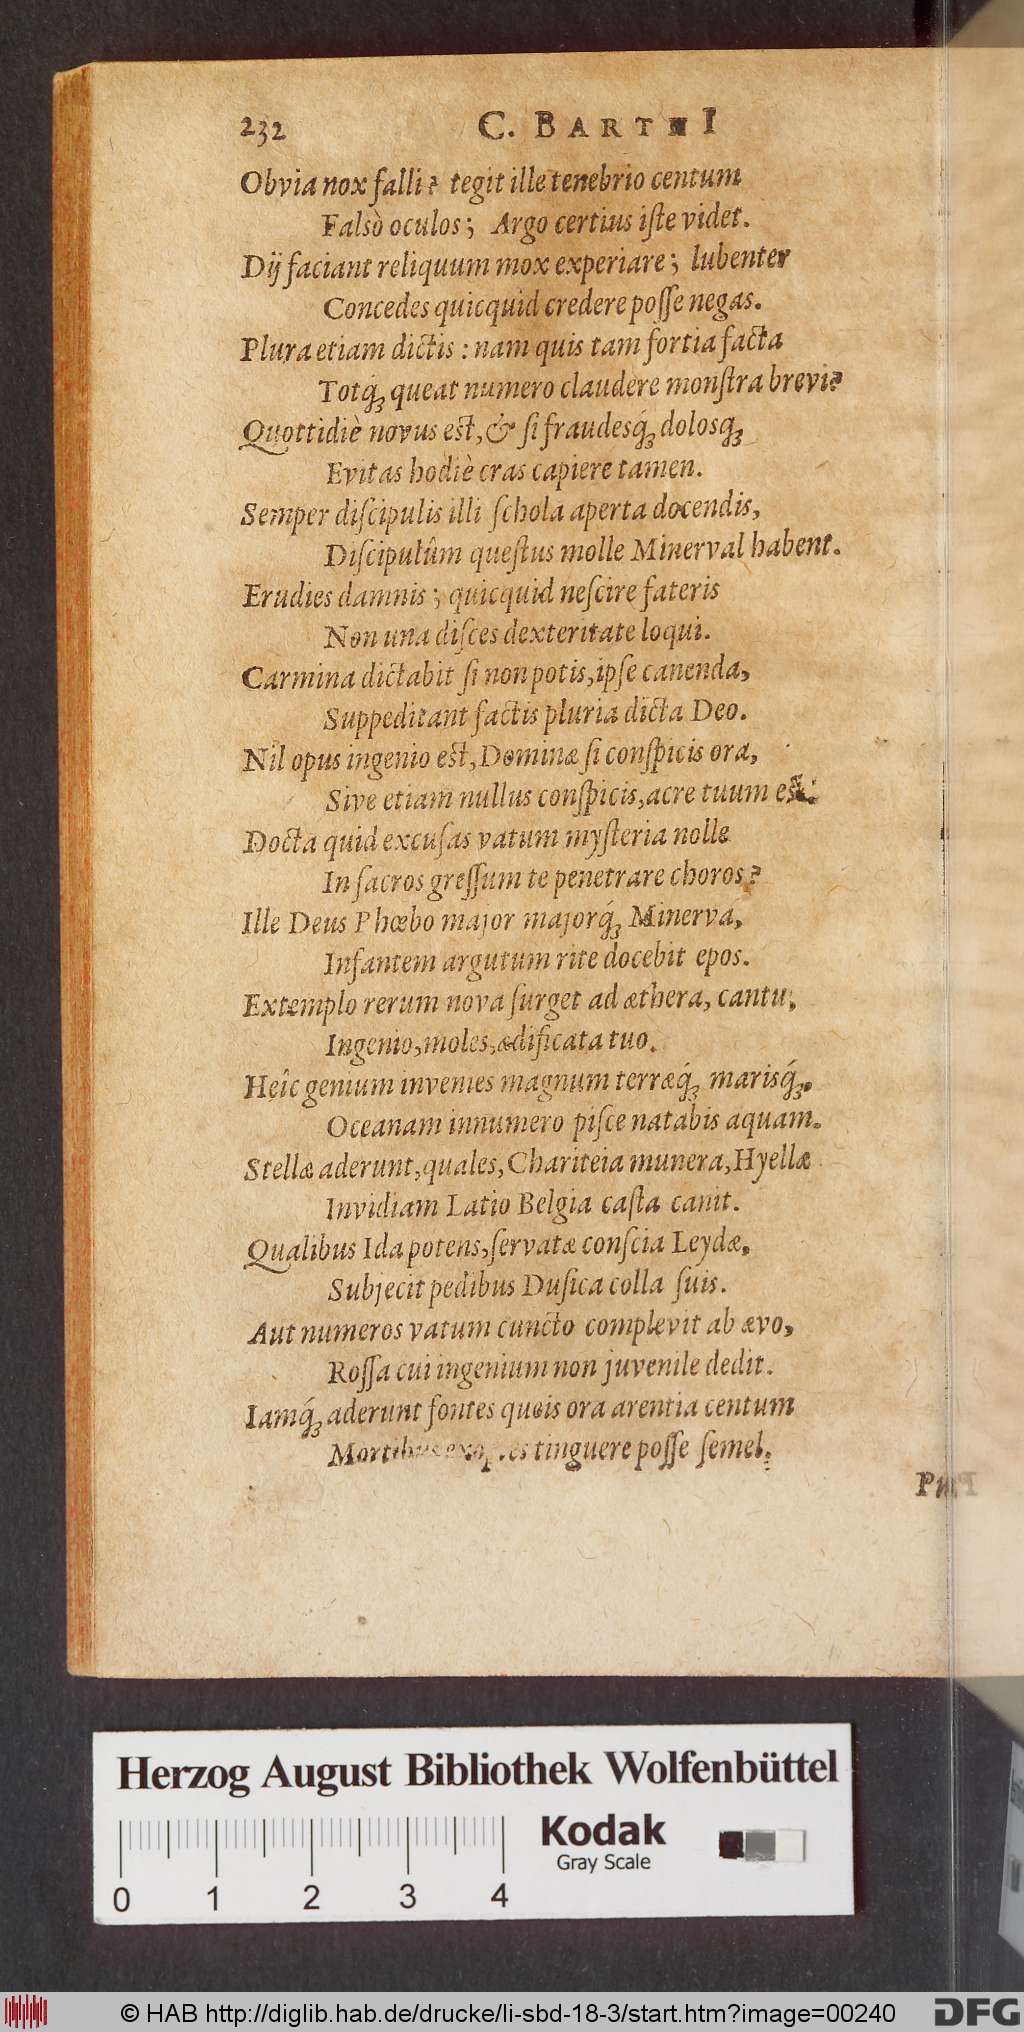 232 C. BARTHI
Obvia nox falli? tegit ille tenebrio centum
Falsò oculos; Argo certius iſte videt.
Dij faciant reliquum mox experiare; lubenter
Concedes quicquid credere poſſe negas.
Plura etiam dictis: nam quis tam fortia facta
Totq́ꝫ queat numero claudere monſtra brevi?
Quottidiè novus est, & ſi fraudesq́ꝫ dolosq́ꝫ
Evitas hodiè cras capiere tamen.
Semper diſcipulis illi ſchola aperta docendis,
Diſcipulûm queſtus molle Minerval habent.
Erudies damnis; quicquid neſcire fateris
Non una diſces dexteritate loqui.
Carmina dictabit ſi non potis, ipſe canenda,
Suppeditant factis pluria dicta Deo.
Nil opus ingenio est, Dominæ ſi conſpicis ora,
Sive etiam nullus conſpicis, acre tuum est.
Docta quid excuſas vatum myſteria nolle
In ſacros greſſum te penetrare choros?
Ille Deus Phœbo major majorq́ꝫ Minervá,
Infantem argutum rite docebit epos.
Extemplo rerum nova ſurget ad æthera, cantu,
Ingenio, moles, ædificata tuo.
Heîc genium invenies magnum terræq́ꝫ marisq́ꝫ.
Oceanam innumero piſce natabis aquam.
Stellæ aderunt, quales, Chariteia munera, Hyellæ
Invidiam Latio Belgia caſta canit.
Qualibus Ida potens, ſervatæ conſcia Leydæ,
Subjecit pedibus Duſica colla ſuis.
Aut numeros vatum cuncto complevit ab ævo,
Roſſa cui ingenium non juvenile dedit.
Iamq́ꝫ aderunt fontes queis ora arentia centum
tinguere poſſe ſemel.
Herzog August Bibliothek Wolfenbüttel
Kodak
Gray Scale
0 1 2 3 4
© HAB http://diglib.hab.de/drucke/li-sbd-18-3/start.htm?image=00240
DFG